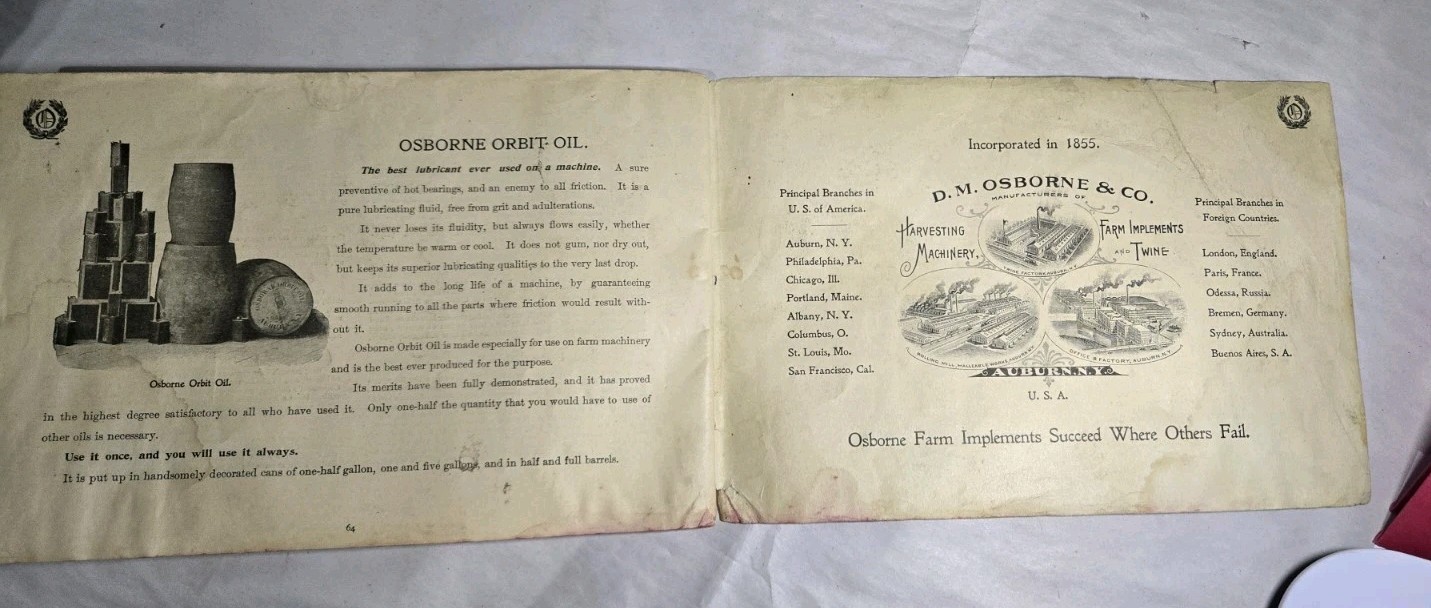 O
OSBORNE ORBIT OIL.
The best lubricant ever used on a machine. A sure
preventive of hot bearings, and an enemy to all friction. It is a
pure lubricating fluid, free from grit and adulterations.
It never loses its fluidity, but always flows easily, whether
the temperature be warm or cool. It does not gum, nor dry out,
but keeps its superior lubricating qualities to the very last drop.
It adds to the long life of a machine, by guaranteeing
smooth running to all the parts where friction would result with-
out it.
Osborne Orbit Oil is made especially for use on farm machinery
and is the best ever produced for the purpose.
Its merits have been fully demonstrated, and it has proved
in the highest degree satisfactory to all who have used it. Only one-half the quantity that you would have to use of
other oils is necessary.
Use it once, and you will use it always.
It is put up in handsomely decorated cans of one-half gallon, one and five gallons, and in half and full barrels.
Osborne Orbit Oil.
64
O
Incorporated in 1855.
Principal Branches in
U. S. of America.
Auburn, N. Y.
Philadelphia, Pa.
Chicago, Ill.
Portland, Maine.
Albany, N. Y.
Columbus, O.
St. Louis, Mo.
San Francisco, Cal.
D. M. OSBORNE & CO.
MANUFACTURERS OF
HARVESTING
MACHINERY,
FARM IMPLEMENTS
AND TWINE
TWINE FACTORY, AUBURN, N.Y.
ROLLING MILL, MALLEABLE WORKS, AUBURN, N.Y.
OFFICE & FACTORY, AUBURN, N.Y.
AUBURN, N.Y.
U. S. A.
Principal Branches in
Foreign Countries.
London, England.
Paris, France.
Odessa, Russia.
Bremen, Germany.
Sydney, Australia.
Buenos Aires, S. A.
Osborne Farm Implements Succeed Where Others Fail.